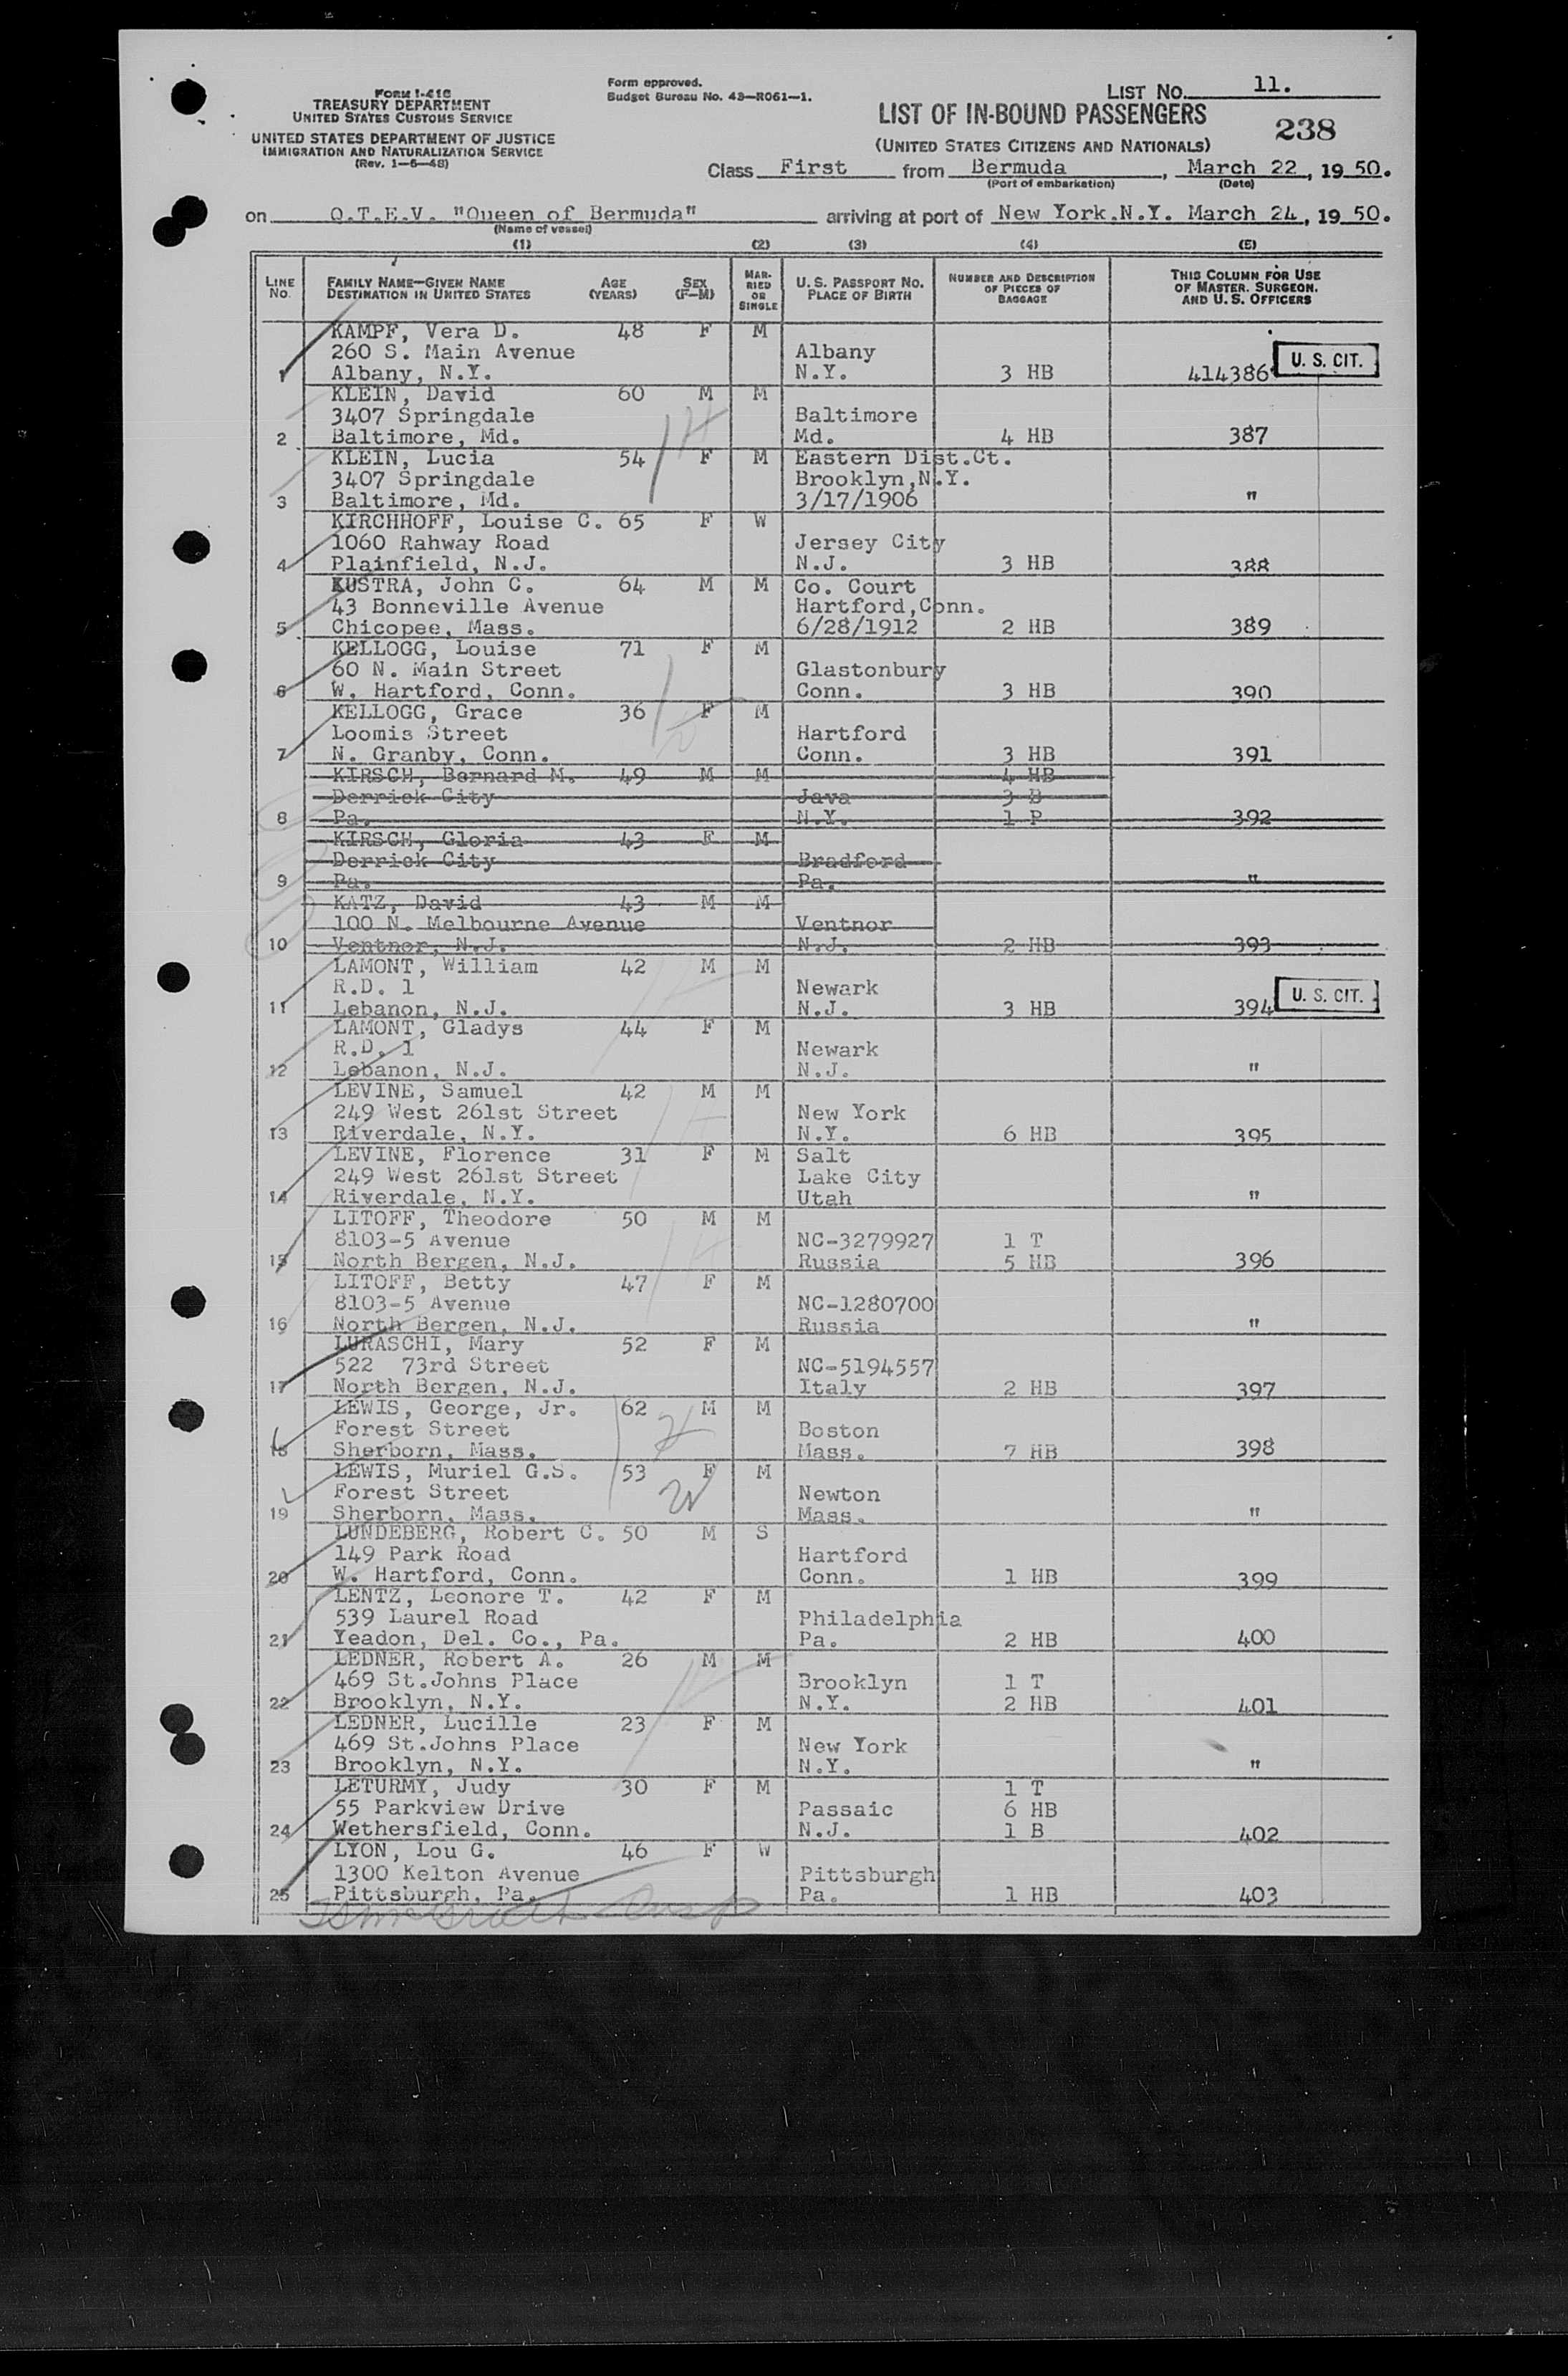 FORM I-416
TREASURY DEPARTMENT
UNITED STATES CUSTOMS SERVICE
UNITED STATES DEPARTMENT OF JUSTICE
IMMIGRATION AND NATURALIZATION SERVICE
(Rev. 1-6-48)
Form approved.
Budget Bureau No. 43-R061-1.
LIST NO. 11.
LIST OF IN-BOUND PASSENGERS
238
(UNITED STATES CITIZENS AND NATIONALS)
Class First from Bermuda, March 22, 1950.
(Port of embarkation) (Date)
on Q.T.E.V. "Queen of Bermuda" arriving at port of New York.N.Y. March 24, 1950.
(Name of vessel)
(1) (2) (3) (4) (5)
LINE NO. FAMILY NAME-GIVEN NAME DESTINATION IN UNITED STATES AGE (YEARS) SEX (F-M) MARRIED OR SINGLE U. S. PASSPORT NO. PLACE OF BIRTH NUMBER AND DESCRIPTION OF PIECES OF BAGGAGE THIS COLUMN FOR USE OF MASTER, SURGEON, AND U. S. OFFICERS
KAMPF, Vera D. 48 F M
260 S. Main Avenue Albany U. S. CIT.
1 Albany, N.Y. N.Y. 3 HB 414386
KLEIN, David 60 M M
3407 Springdale Baltimore
2 Baltimore, Md. Md. 4 HB 387
KLEIN, Lucia 54 F M Eastern Dist.Ct.
3407 Springdale Brooklyn,N.Y.
3 Baltimore, Md. 3/17/1906 "
KIRCHHOFF, Louise C. 65 F W
1060 Rahway Road Jersey City
4 Plainfield, N.J. N.J. 3 HB 388
KUSTRA, John C. 64 M M Co. Court
43 Bonneville Avenue Hartford,Conn.
5 Chicopee, Mass. 6/28/1912 2 HB 389
KELLOGG, Louise 71 F M
60 N. Main Street Glastonbury
6 W. Hartford, Conn. Conn. 3 HB 390
KELLOGG, Grace 36 F M
Loomis Street Hartford
7 N. Granby, Conn. Conn. 3 HB 391
KIRSCH, Bernard M. 49 M M 4 HB
Derrick City Java 3 B
8 Pa. N.Y. 1 P 392
KIRSCH, Gloria 43 F M
Derrick City Bradford
9 Pa. Pa. "
KATZ, David 43 M M
100 N. Melbourne Avenue Ventnor
10 Ventnor, N.J. N.J. 2 HB 393
LAMONT, William 42 M M
R.D. 1 Newark U. S. CIT.
11 Lebanon, N.J. N.J. 3 HB 394
LAMONT, Gladys 44 F M
R.D. 1 Newark
12 Lebanon, N.J. N.J. "
LEVINE, Samuel 42 M M
249 West 261st Street New York
13 Riverdale, N.Y. N.Y. 6 HB 395
LEVINE, Florence 31 F M Salt
249 West 261st Street Lake City
14 Riverdale, N.Y. Utah "
LITOFF, Theodore 50 M M
8103-5 Avenue NC-3279927 1 T
15 North Bergen, N.J. Russia 5 HB 396
LITOFF, Betty 47 F M
8103-5 Avenue NC-1280700
16 North Bergen, N.J. Russia "
LURASCHI, Mary 52 F M
522 73rd Street NC-5194557
17 North Bergen, N.J. Italy 2 HB 397
LEWIS, George, Jr. 62 M M
Forest Street Boston
18 Sherborn, Mass. Mass. 7 HB 398
LEWIS, Muriel G.S. 53 F M
Forest Street Newton
19 Sherborn, Mass. Mass. "
LUNDEBERG, Robert C. 50 M S
149 Park Road Hartford
20 W. Hartford, Conn. Conn. 1 HB 399
LENTZ, Leonore T. 42 F M
539 Laurel Road Philadelphia
21 Yeadon, Del. Co., Pa. Pa. 2 HB 400
LEDNER, Robert A. 26 M M
469 St.Johns Place Brooklyn 1 T
22 Brooklyn, N.Y. N.Y. 2 HB 401
LEDNER, Lucille 23 F M
469 St.Johns Place New York
23 Brooklyn, N.Y. N.Y. "
LETURMY, Judy 30 F M 1 T
55 Parkview Drive Passaic 6 HB
24 Wethersfield, Conn. N.J. 1 B 402
LYON, Lou G. 46 F W
1300 Kelton Avenue Pittsburgh
25 Pittsburgh, Pa. Pa. 1 HB 403